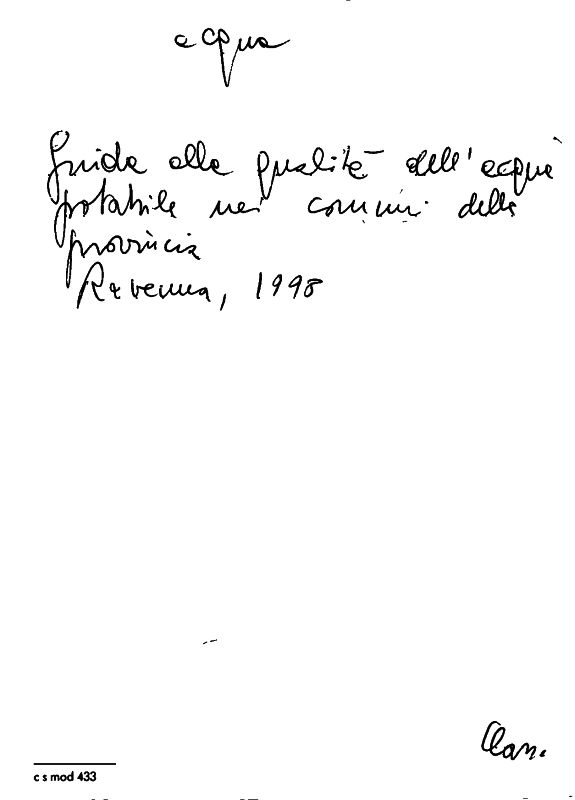 acqua
Guida alla qualità dell'acqua
potabile nei comuni della
provincia
Ravenna, 1998
Clas.
c s mod 433